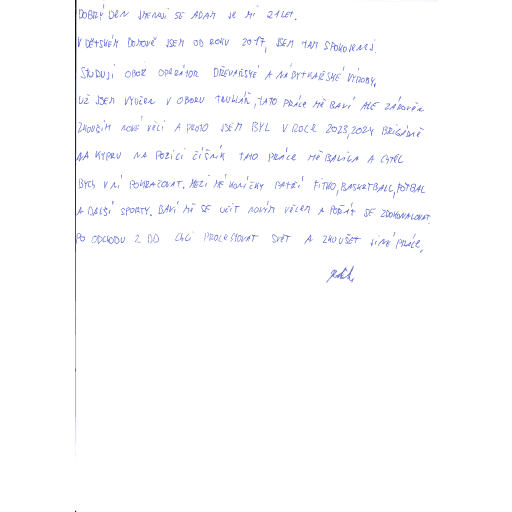 DOBRÝ DEN JMENUJI SE ADAM JE MI 21 LET.
V DĚTSKÉM DOMOVĚ JSEM OD ROKU 2017, JSEM TAM SPOKOJENÝ.
STUDUJI OBOR OPERÁTOR DŘEVAŘSKÉ A NÁBYTKÁŘSKÉ VÝROBY,
UŽ JSEM VYUČEN V OBORU TRUHLÁŘ, TATO PRÁCE MĚ BAVÍ ALE ZÁROVEŇ
ZKOUŠÍM NOVÉ VĚCI A PROTO JSEM BYL V ROCE 2023, 2024 BRIGÁDNĚ
NA KYPRU NA POZICI ČÍŠNÍK TATO PRÁCE MĚ BAVILA A CHTĚL
BYCH V NÍ POKRAČOVAT. MEZI MÉ KONÍČKY PATŘÍ FITKO, BASKETBALL, FOTBAL
A DALŠÍ SPORTY. BAVÍ MĚ SE UČIT NOVÝM VĚCEM A POŘÁD SE ZDOKONALOVAT.
PO ODCHODU Z DD CHCI PROCESTOVAT SVĚT A ZKOUŠET JINÉ PRÁCE.